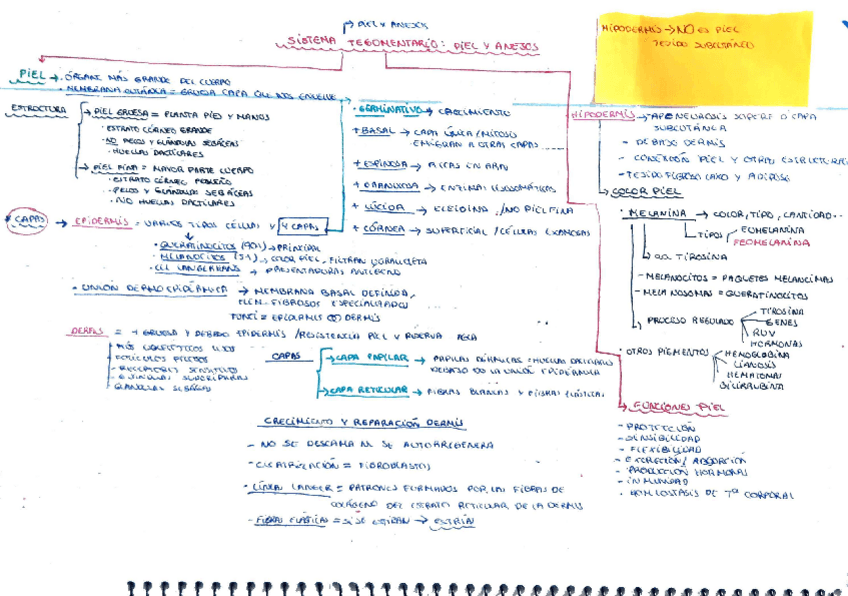 → PIEL Y ANEXOS
SISTEMA TEGOMENTARIO: PIEL Y ANEXOS
HIPODERMIS → NO ES PIEL
TEJIDO SUBCUTÁNEO
PIEL → ÓRGANO MÁS GRANDE DEL CUERPO
→ MEMBRANA CUTÁNEA = GRUESA CAPA QUE NOS ENVUELVE
ESTRUCTURA → PIEL GRUESA = PLANTA PIES Y MANOS
· ESTRATO CÓRNEO GRANDE
· NO PELOS Y GLÁNDULAS SEBÁCEAS
· HUELLAS DACTILARES
→ PIEL FINA = MAYOR PARTE CUERPO
· ESTRATO CÓRNEO PEQUEÑO
· PELOS Y GLÁNDULAS SEBÁCEAS
· NO HUELLAS DACTILARES
· GERMINATIVO → CRECIMIENTO
+ BASAL → CAPA ÚNICA / MITOSIS
EMIGRAN A OTRAS CAPAS
+ ESPINOSA →
+ GRANULOSA →
+ LÚCIDA → ELEIDINA / NO PIEL FINA
+ CÓRNEA → SUPERFICIAL / CÉLULAS
* CAPAS → EPIDERMIS = VARIOS TIPOS CÉLULAS Y 4 CAPAS
· QUERATINOCITOS (90%) → PRINCIPAL
· MELANOCITOS (5%) → COLOR PIEL, FILTRAN
· CEL LANGERHANS → PRESENTADORAS ANTÍGENO
· UNIÓN DERMOEPIDÉRMICA → MEMBRANA BASAL DEFINIDA,
ELEM. FIBROSOS ESPECIALIZADOS
FUNCI = EPIDERMIS DERMIS
DERMIS = + GRUESA Y DEBAJO EPIDERMIS / RESISTENCIA PIEL Y RESERVA AGUA
· FOLÍCULOS PILOSOS
· RECEPTORES
· GLÁNDULAS SUDORÍPARAS
GLÁNDULAS SEBÁCEAS
CAPAS → CAPA PAPILAR → PAPILAS DÉRMICAS = HUELLA DACTILARES
DEBAJO DE LA UNIÓN EPIDÉRMICA
→ CAPA RETICULAR → FIBRAS BLANCAS Y FIBRAS ELÁSTICAS
CRECIMIENTO Y REPARACIÓN DERMIS
- NO SE DESCAMA NI SE AUTORREGENERA
- CICATRIZACIÓN = FIBROBLASTOS
· LÍNEA LANGER = PATRONES FORMADOS POR LAS FIBRAS DE
COLÁGENO DEL ESTRATO RETICULAR DE LA DERMIS
- FIBRAS ELÁSTICAS = SI SE ESTIRAN → ESTRÍAS
HIPODERMIS → APONEUROSIS SUPERF O CAPA
SUBCUTÁNEA
- DEBAJO DERMIS
- CONEXIÓN PIEL Y OTRAS ESTRUCTURAS
- TEJIDO FIBROSO LAXO Y ADIPOSO
→ COLOR PIEL
· MELANINA → COLOR, TIPO, CANTIDAD··
→ TIPOS → EUMELANINA
FEOMELANINA
→ a.a. TIROSINA
- MELANOCITOS = PAQUETES MELANOSOMAS
- MELANOSOMAS = QUERATINOCITOS
→ PROCESO REGULADO → TIROSINA
→ GENES
→ RUV
→ HORMONAS
· OTROS PIGMENTOS → HEMOGLOBINA
CIANOSIS
HEMATOMAS
BILIRRUBINA
→ FUNCIONES PIEL
- PROTECCIÓN
- SENSIBILIDAD
- FLEXIBILIDAD
- EXCRECIÓN / ABSORCIÓN
- PRODUCCIÓN HORMONAS
- INMUNIDAD
- HOMEOSTASIS DE Tª CORPORAL